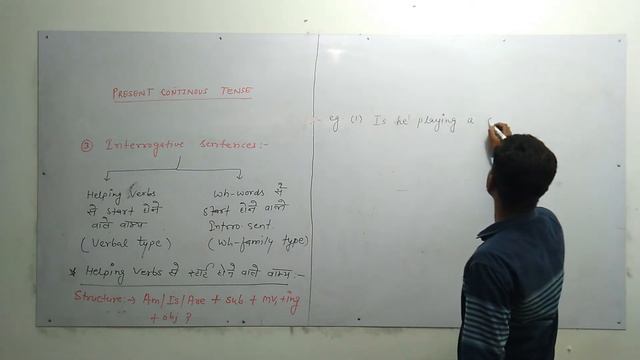 PRESENT CONTINOUS TENSE
③ Interrogative sentences:-
Helping Verbs
से start होने
वाले वाक्य
(Verbal type)
Wh-words से
start होने वाले
Intero. sent.
(Wh-family type)
* Helping Verbs से स्टार्ट होने वाले वाक्य :-
Structure:→ Am/Is/Are + sub. + MV₁ + ing
+ obj ?
eg (1) Is he playing a